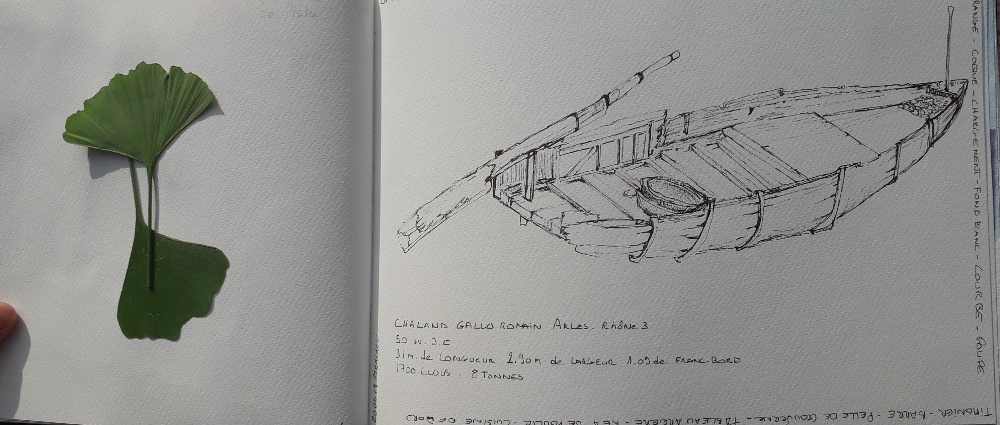 CHALAND GALLO ROMAIN ARLES. RHÔNE 3
50 AV. J.C
31m. de LONGUEUR 2.90m. de LARGEUR 1.09 de FRANC. BORD
1700 CLOUS. 8 TONNES
COQUE - CHARGEMENT - FOND BLANC - COURBE - POUPE
TIMONIER - BARRE - PELLE DE GOUVERNE - TABLEAU ARRIERE - CUISINE DE BORD